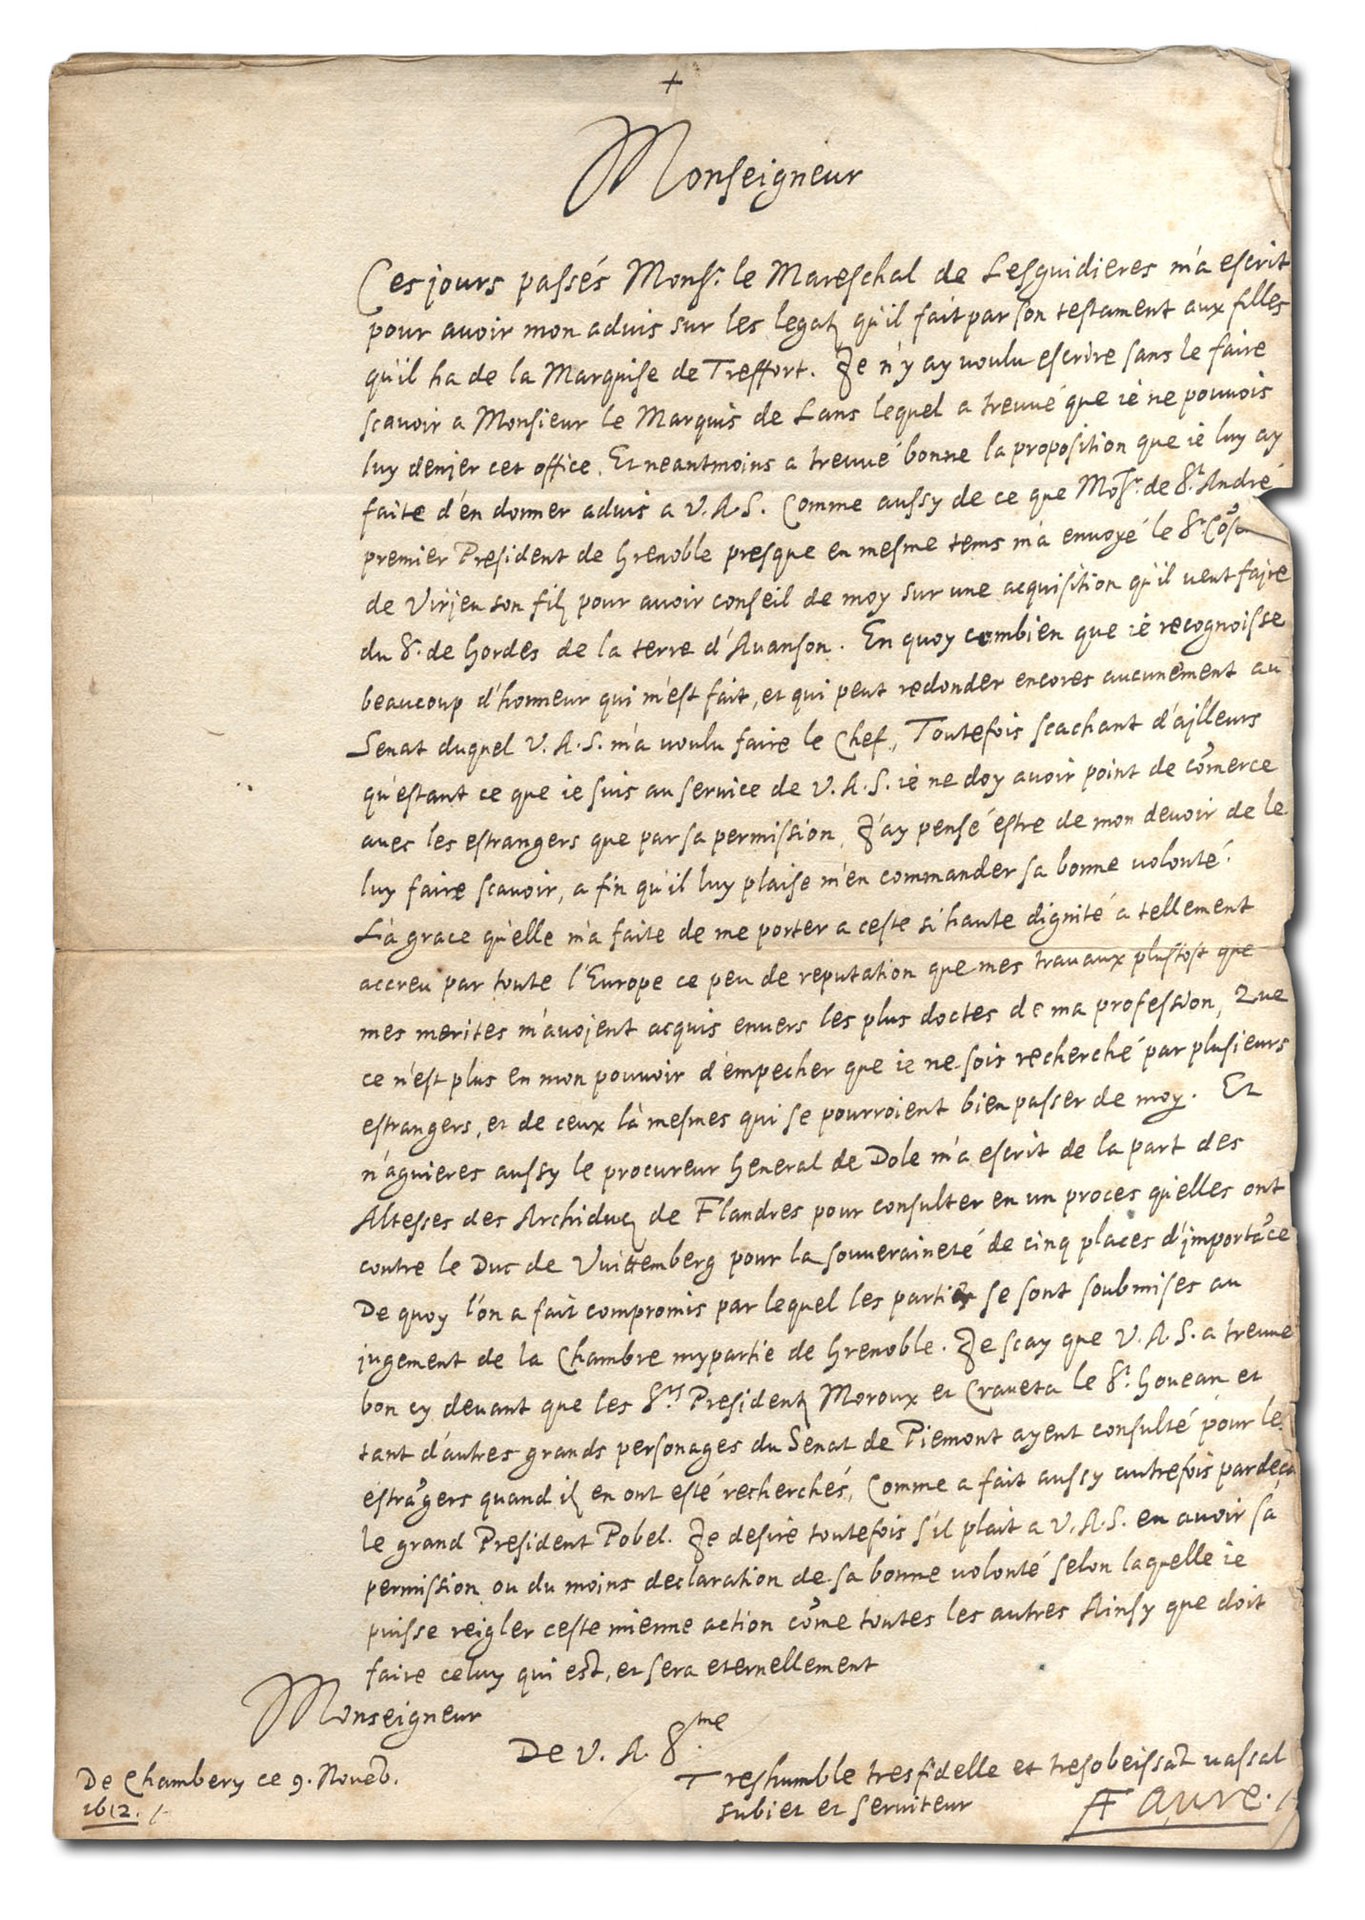 +
Monseigneur
Ces jours passés Mons.r le Mareschal de Lesguidieres m'a escrit
pour avoir mon advis sur les legatz qu'il fait par son testament aux filles
qu'il ha de la Marquise de Treffort. Je n'y ay voulu escrire sans le faire
scavoir a Monsieur le Marquis de Lans lequel a treuvé que ie ne pouvois
luy denier cet office. Et neantmoins a treuvé bonne la proposition que ie luy ay
faite d'en donner advis a V.A.S. Comme aussy de ce que Mo.sr de S.t André
premier President de Grenoble presque en mesme tems m'a envoyé le S.r
de Virjeu son filz pour avoir conseil de moy sur une acquisition qu'il veut faire
du S.r de Gordes de la terre d'Avanson. En quoy combien que ie recognoisse
beaucoup d'honneur qui m'est fait, et qui peut redonder encores aucunement au
Senat duquel V.A.S. m'a voulu faire le Chef, Toutefois scachant d'ailleurs
qu'estant ce que ie suis au service de V.A.S. ie ne doy avoir point de cõmerce
avec les estrangers que par sa permission, J'ay pensé estre de mon devoir de le
luy faire scavoir, a fin qu'il luy plaise m'en commander sa bonne volonté.
La grace qu'elle m'a faite de me porter a ceste si haute dignité a tellement
accreu par toute l'Europe ce peu de reputation que mes travaux plustost que
mes merites m'avojent acquis envers les plus doctes de ma profession, Que
ce n'est plus en mon pouvoir d'empecher que ie ne sois recherché par plusieurs
estrangers, et de ceux là mesmes qui se pourroient bien passer de moy. Et
n'aguieres aussy le procureur General de Dole m'a escrit de la part des
Altesses des Archiducz de Flandres pour consulter en un proces qu'elles ont
contre le Duc de Vuittemberg pour la souveraineté de cinq places d'importãce
De quoy l'on a fait compromis par lequel les parties se sont soubmises au
jugement de la Chambre mypartie de Grenoble. Je scay que V.A.S. a treuvé
bon cy devant que les S.rs Presidentz Moroux et Craveta le S.r Govean et
tant d'autres grands personages du Senat de Piemont ayent consulté pour les
estrãgers quand ilz en ont esté recherchés, Comme a fait aussy autrefois pardeça
le grand President Pobel. Je desire toutefois s'il plait a V.A.S. en avoir sa
permission ou du moins declaration de sa bonne volonté selon laquelle ie
puisse reigler ceste mienne action cõme toutes les autres Ainsy que doit
faire celuy qui est, et sera eternellement
Monseigneur
De V. A. S.me
De Chambery ce 9. Noveb.
1612.
Treshumble tresfidelle et tresobeissãt vassal
subiet et serviteur
AFavre.